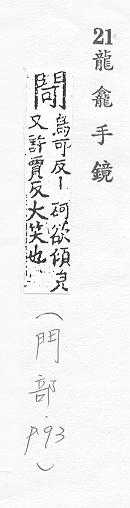 21 龍龕手鏡
閜
烏可反丨砢欲傾皃
又許賈反大笑也
(門部 p.93)